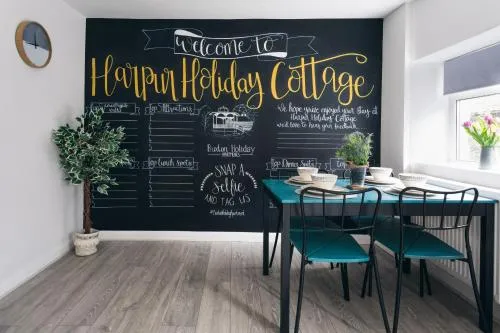 Welcome to
Harpur Holiday Cottage
Top Attractions
We hope you've enjoyed your stay at
Harpur Holiday Cottage
we'd love to hear your feedback
Buxton Holiday
Top Lunch Spots
Top Dinner Spots
SNAP A
Selfie
AND TAG US